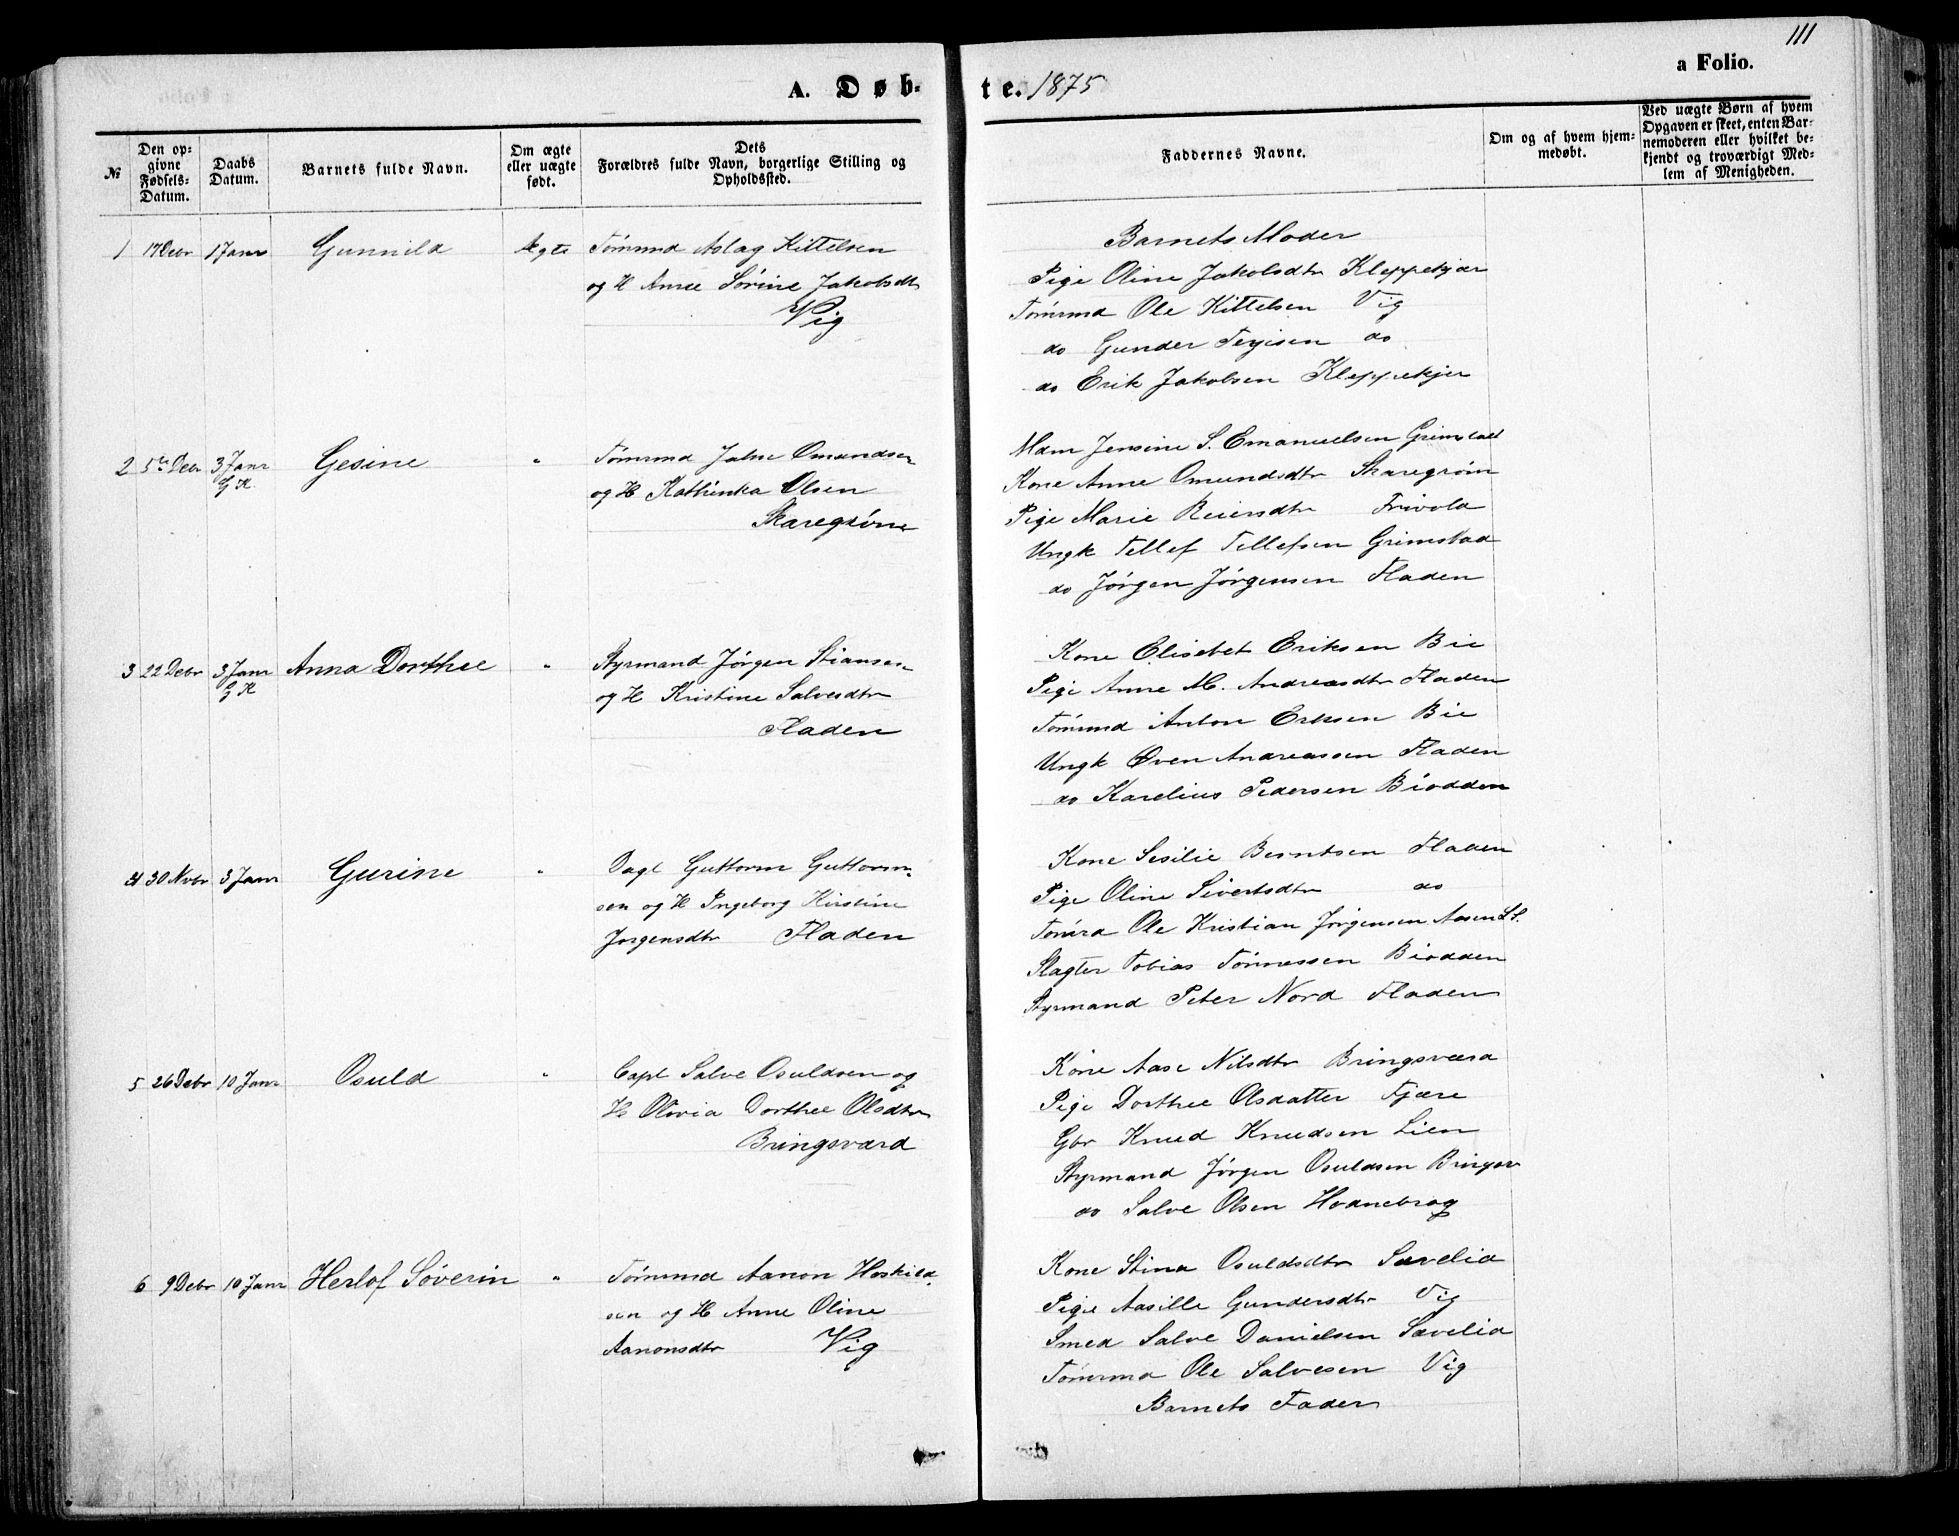 111
A. Døb- te. 1875
a Folio.
№
Den op-
givne
Fødsels-
Datum.
Daabs
Datum.
Barnets fulde Navn.
Om ægte
eller uægte
født.
Dets
Forældres fulde Navn, borgerlige Stilling og
Opholdssted.
Faddernes Navne.
Om og af hvem hjem-
medøbt.
Ved uægte Børn af hvem
Opgaven er skeet, enten Bar-
nemoderen eller hvilket be-
kjendt og troværdigt Med-
lem af Menigheden.
1 17 Debr 1 Janr Gunnild Ægte Tømrmd Aslag Kittelsen
og H Anne Sørine Jakobsdtr
Vig
Barnets Moder
Pige Oline Jakobsdtr Kleppekjær
Tømrmd Ole Kittelsen Vig
do Gunder Terjesen do
do Erik Jakobsen Kleppekjer
2 5te Debr 3 Janr Gesine " Tømrmd John Omundsen
G K
og H Kathinka Olsen
Skaregrøm
Mam Jensine S. Emanuelsen Grimstad
Kone Anne Omundsdtr Skaregrøm
Pige Marie Reiersdtr Frivold
Ungk Tellef Tellefsen Grimstad
do Jørgen Jørgensen Fladen
3 22 Debr 3 Janr Anna Dorthee " Styrmand Jørgen Stiansen
G K
og H Kristine Salvesdtr
Fladen
Kone Elisebet Eriksen Bie
Pige Anne M. Andreasdtr Fladen
Tømrmd Anton Eriksen Bie
Ungk Even Andreassen Fladen
do Karelius Pedersen Biodden
4 30 Novbr 3 Janr Gurine " Dagl Guttorm Guttorm-
sen og H Ingeborg Kirstine
Jørgensdtr Fladen
Kone Sesilie Berntsen Fladen
Pige Oline Sivertsdtr do
Tømrd Ole Kristian Jørgensen Aasen
Slagter Tobias Tønnessen Biodden
Styrmand Peter Nord Fladen
5 26 Debr 10 Janr Osuld " Capt Salve Osuldsen og
H Olivia Dorthee Olsdtr
Bringsværd
Kone Aase Nilsdtr Bringsværd
Pige Dorthee Olsdatter Fjære
Gbr Knud Knudsen Lien
Styrmand Jørgen Osuldsen Bringsv
do Salve Olsen Hodnebrog
6 9 Debr 10 Janr Herlof Søverin " Tømrmd Aanon Hoskild-
sen og H Anne Oline
Aanonsdtr Vig
Kone Stina Osuldsdtr Sævelid
Pige Aasille Gundersdtr Vig
Smed Salve Danielsen Sævelid
Tømrmd Ole Salvesen Vig
Barnets Fader